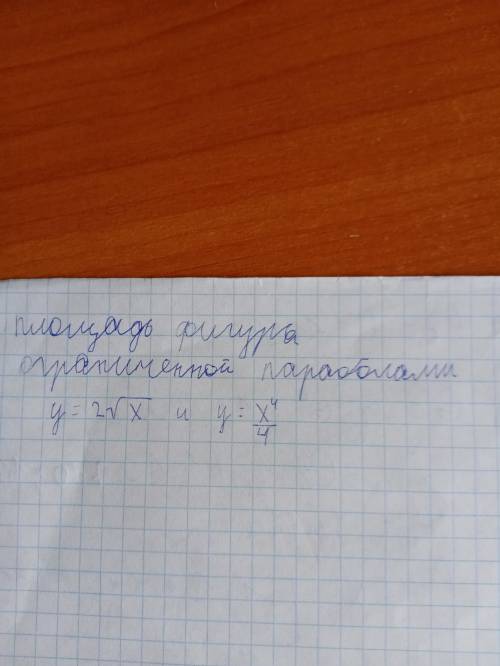 площадь фигура
ограниченной параоблами
y = 2√x и y = x⁴/4